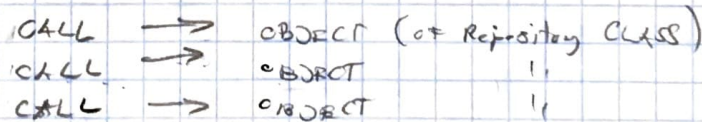 CALL → OBJECT (of Repository CLASS)
CALL → OBJECT "
CALL → OBJECT "